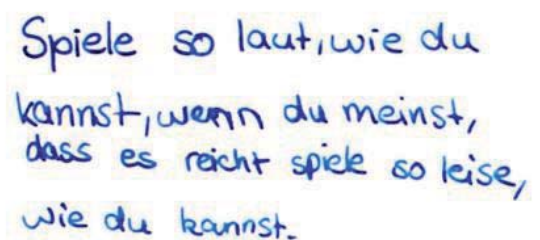 Spiele so laut, wie du
kannst, wenn du meinst,
dass es reicht spiele so leise,
wie du kannst.